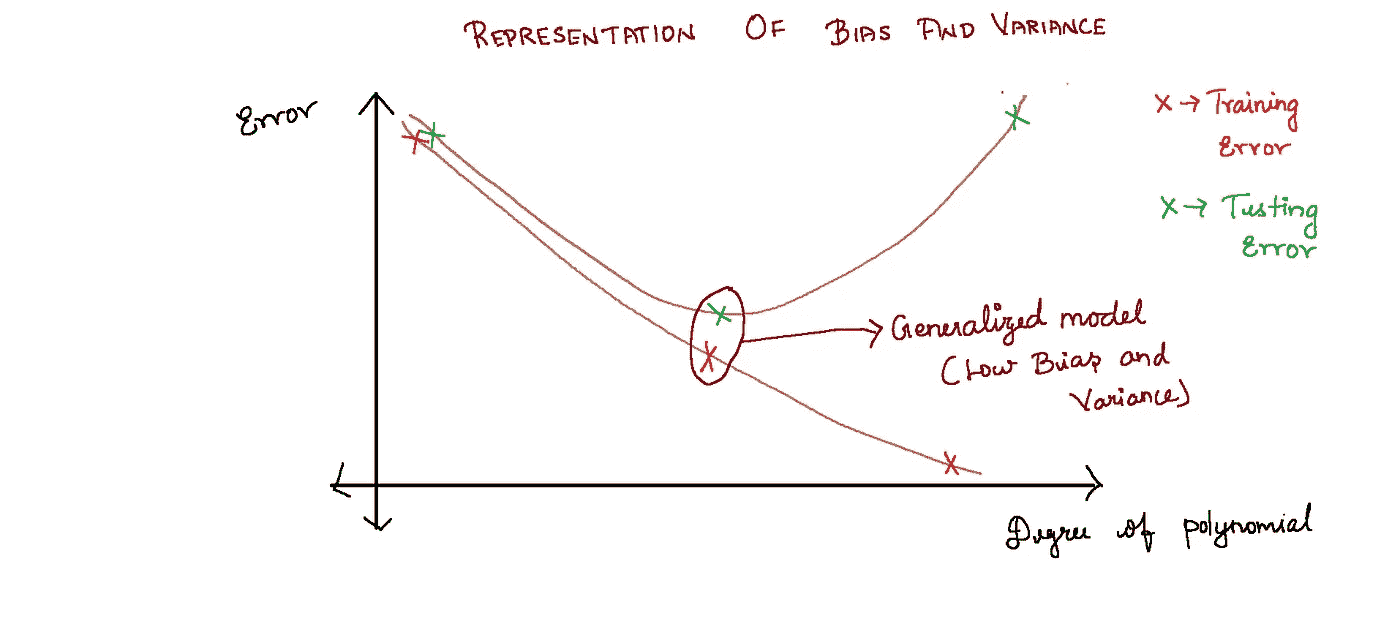 REPRESENTATION OF BIAS AND VARIANCE
Error
X → Training
Error
X → Testing
Error
Generalized model
(Low Bias and
Variance)
Degree of polynomial